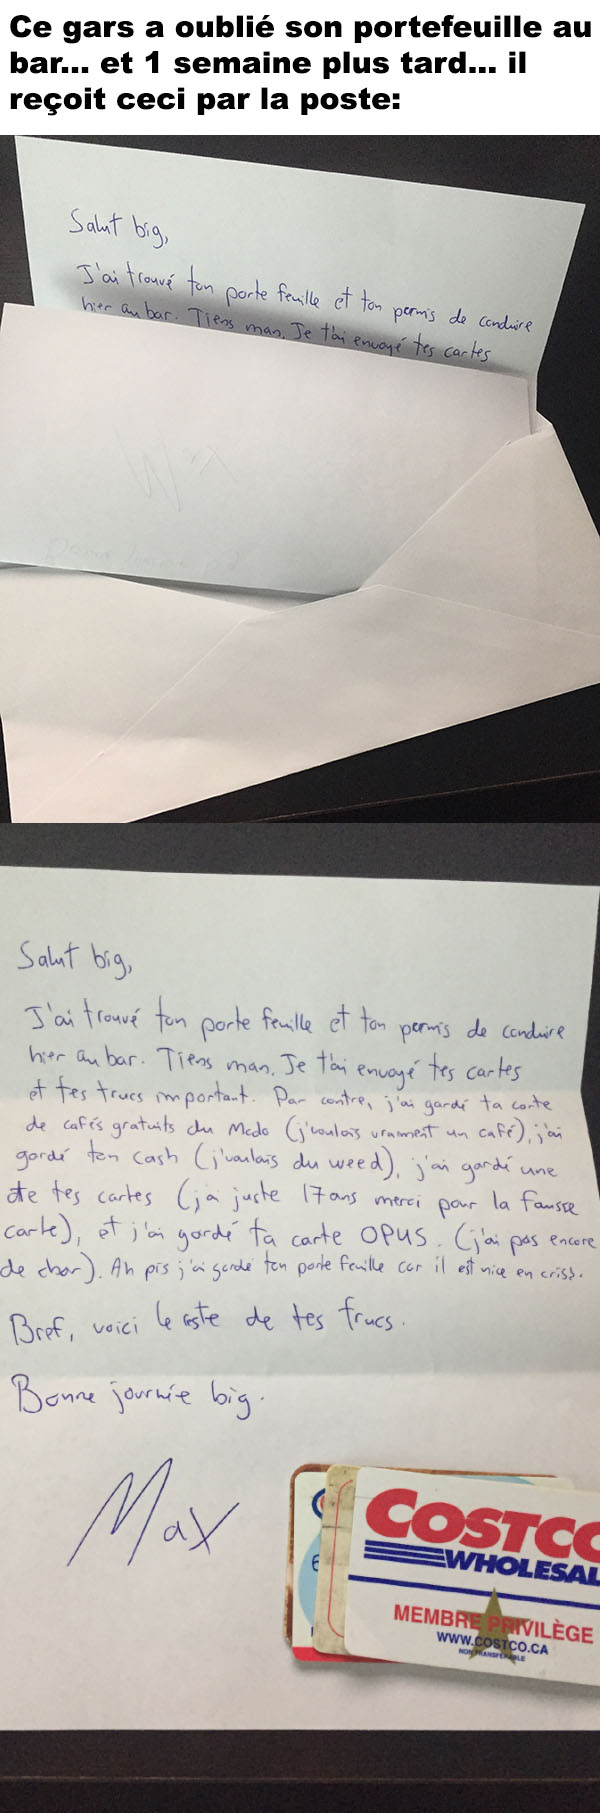 Ce gars a oublié son portefeuille au
bar... et 1 semaine plus tard... il
reçoit ceci par la poste:
Salut big,
J'ai trouvé ton porte feuille et ton permis de conduire
hier au bar. Tiens man. Je t'ai envoyé tes cartes
Salut big,
J'ai trouvé ton porte feuille et ton permis de conduire
hier au bar. Tiens man. Je t'ai envoyé tes cartes
et tes trucs important. Par contre, j'ai gardé ta carte
de cafés gratuits du Mcdo (j'voulais vraiment un café), j'ai
gardé ton cash (j'voulais du weed), j'ai gardé une
de tes cartes (j'a juste 17ans merci pour la fausse
carte), et j'ai gardé ta carte OPUS. (j'ai pas encore
de char). Ah pis j'ai gardé ton porte feuille car il est nice en criss.
Bref, voici le reste de tes trucs.
Bonne journée big.
Max
COSTCO
WHOLESAL
MEMBRE PRIVILÈGE
WWW.COSTCO.CA
NON TRANSFERABLE